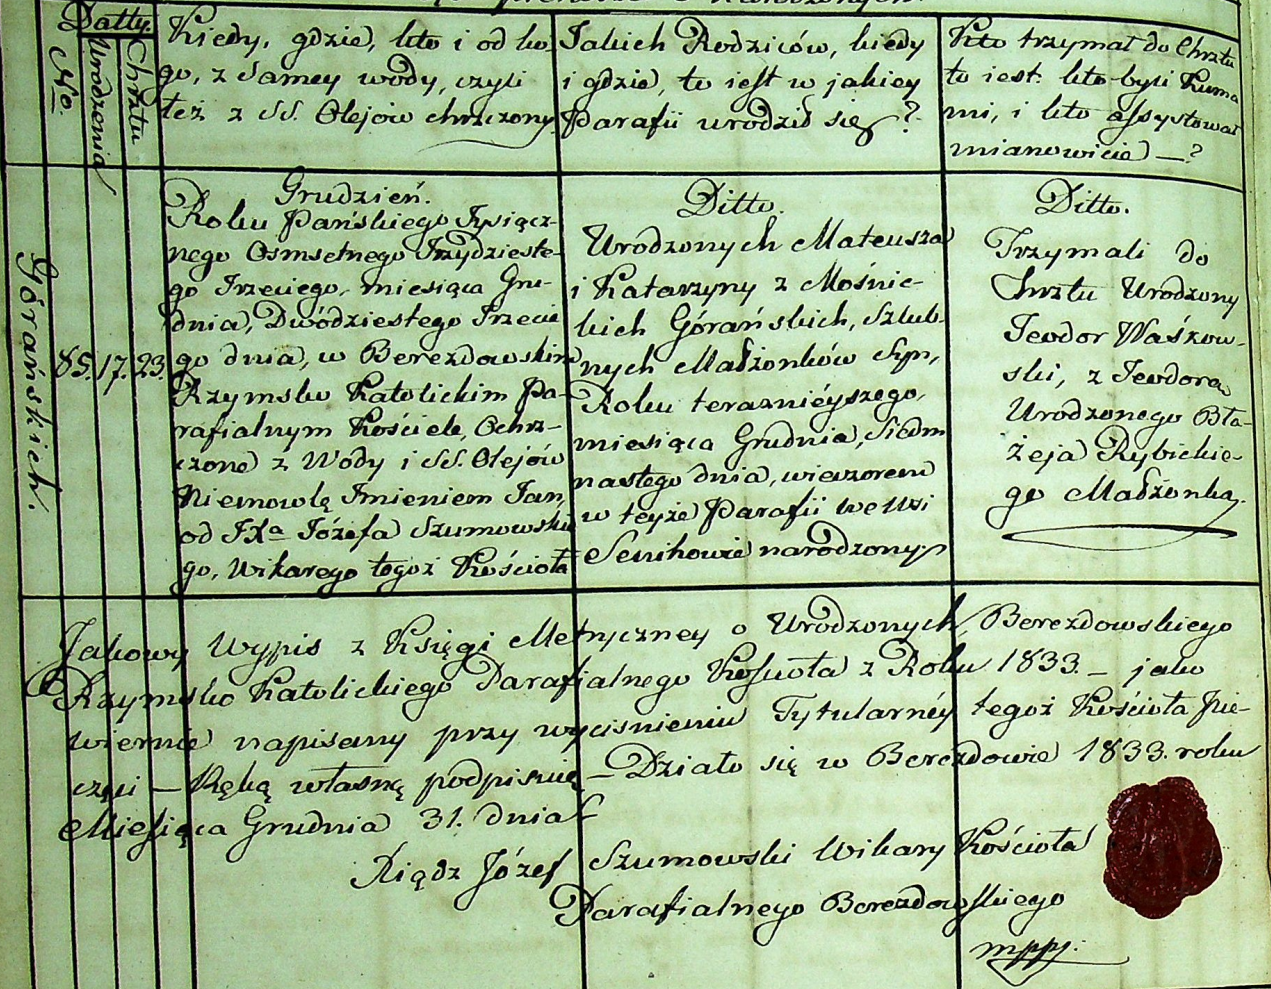 Datty.
No.
Urodzenia
Chrztu
Kiedy, gdzie, kto i od ko
go, z samey wody, czyli
też z SS. Olejów chrzczony
Jakich Rodziców, kiedy
i gdzie, to iest w jakiey
Parafii urodził się?
Kto trzymał do Chrztu
to iest: kto byli Kuma
mi, i kto assystował
mianowicie —?
Góráńskich.
85.
17.
23.
Grudzień.
Roku Pańskiego Tysiącz-
nego Osmsetnego Trzydzieste-
go Trzeciego, miesiąca Gru-
dnia, Dwódziestego Trzecie
go dnia, w Berezdowskim
Rzymsko Katolickim Pa-
rafialnym Kościele, Ochrz-
czone z Wody i SS. Olejów
Niemowlę Imieniem Jan,
od JXa Józefa Szumowskie
go, Wikarego tegoż Kościoła
Ditto.
Urodzonych Mateusza
i Katarzyny z Mośnic-
kich Góráńskich, Szlub-
nych Małżonków Syn,
Roku teraznieyszego,
miesiąca Grudnia, Siedm
nastego dnia, wieczorem
w teyże Parafii we wsi
Senihowie narodzony.
Ditto.
Trzymali do
Chrztu Urodzony
Teodor Waśkow-
ski, z Teodorą
Urodzonego Bła-
żeja Rybickie-
go Małżonką.
Jakowy Wypis z Księgi Metryczney o Urodzonych, Berezdowskiego
Rzymsko Katolickiego Parafialnego Kościoła z Roku 1833. — jako
wiernie napisany przy wyciśnieniu Tytularnéy tegoż Kościoła Pie-
częci — Ręką własną podpisuię — Działo się w Berezdowie 1833. roku
Miesiąca Grudnia 31. dnia
Xiądz Józef Szumowski Wikary Kościoła
Parafialnego Berezdowskiego
mppj.